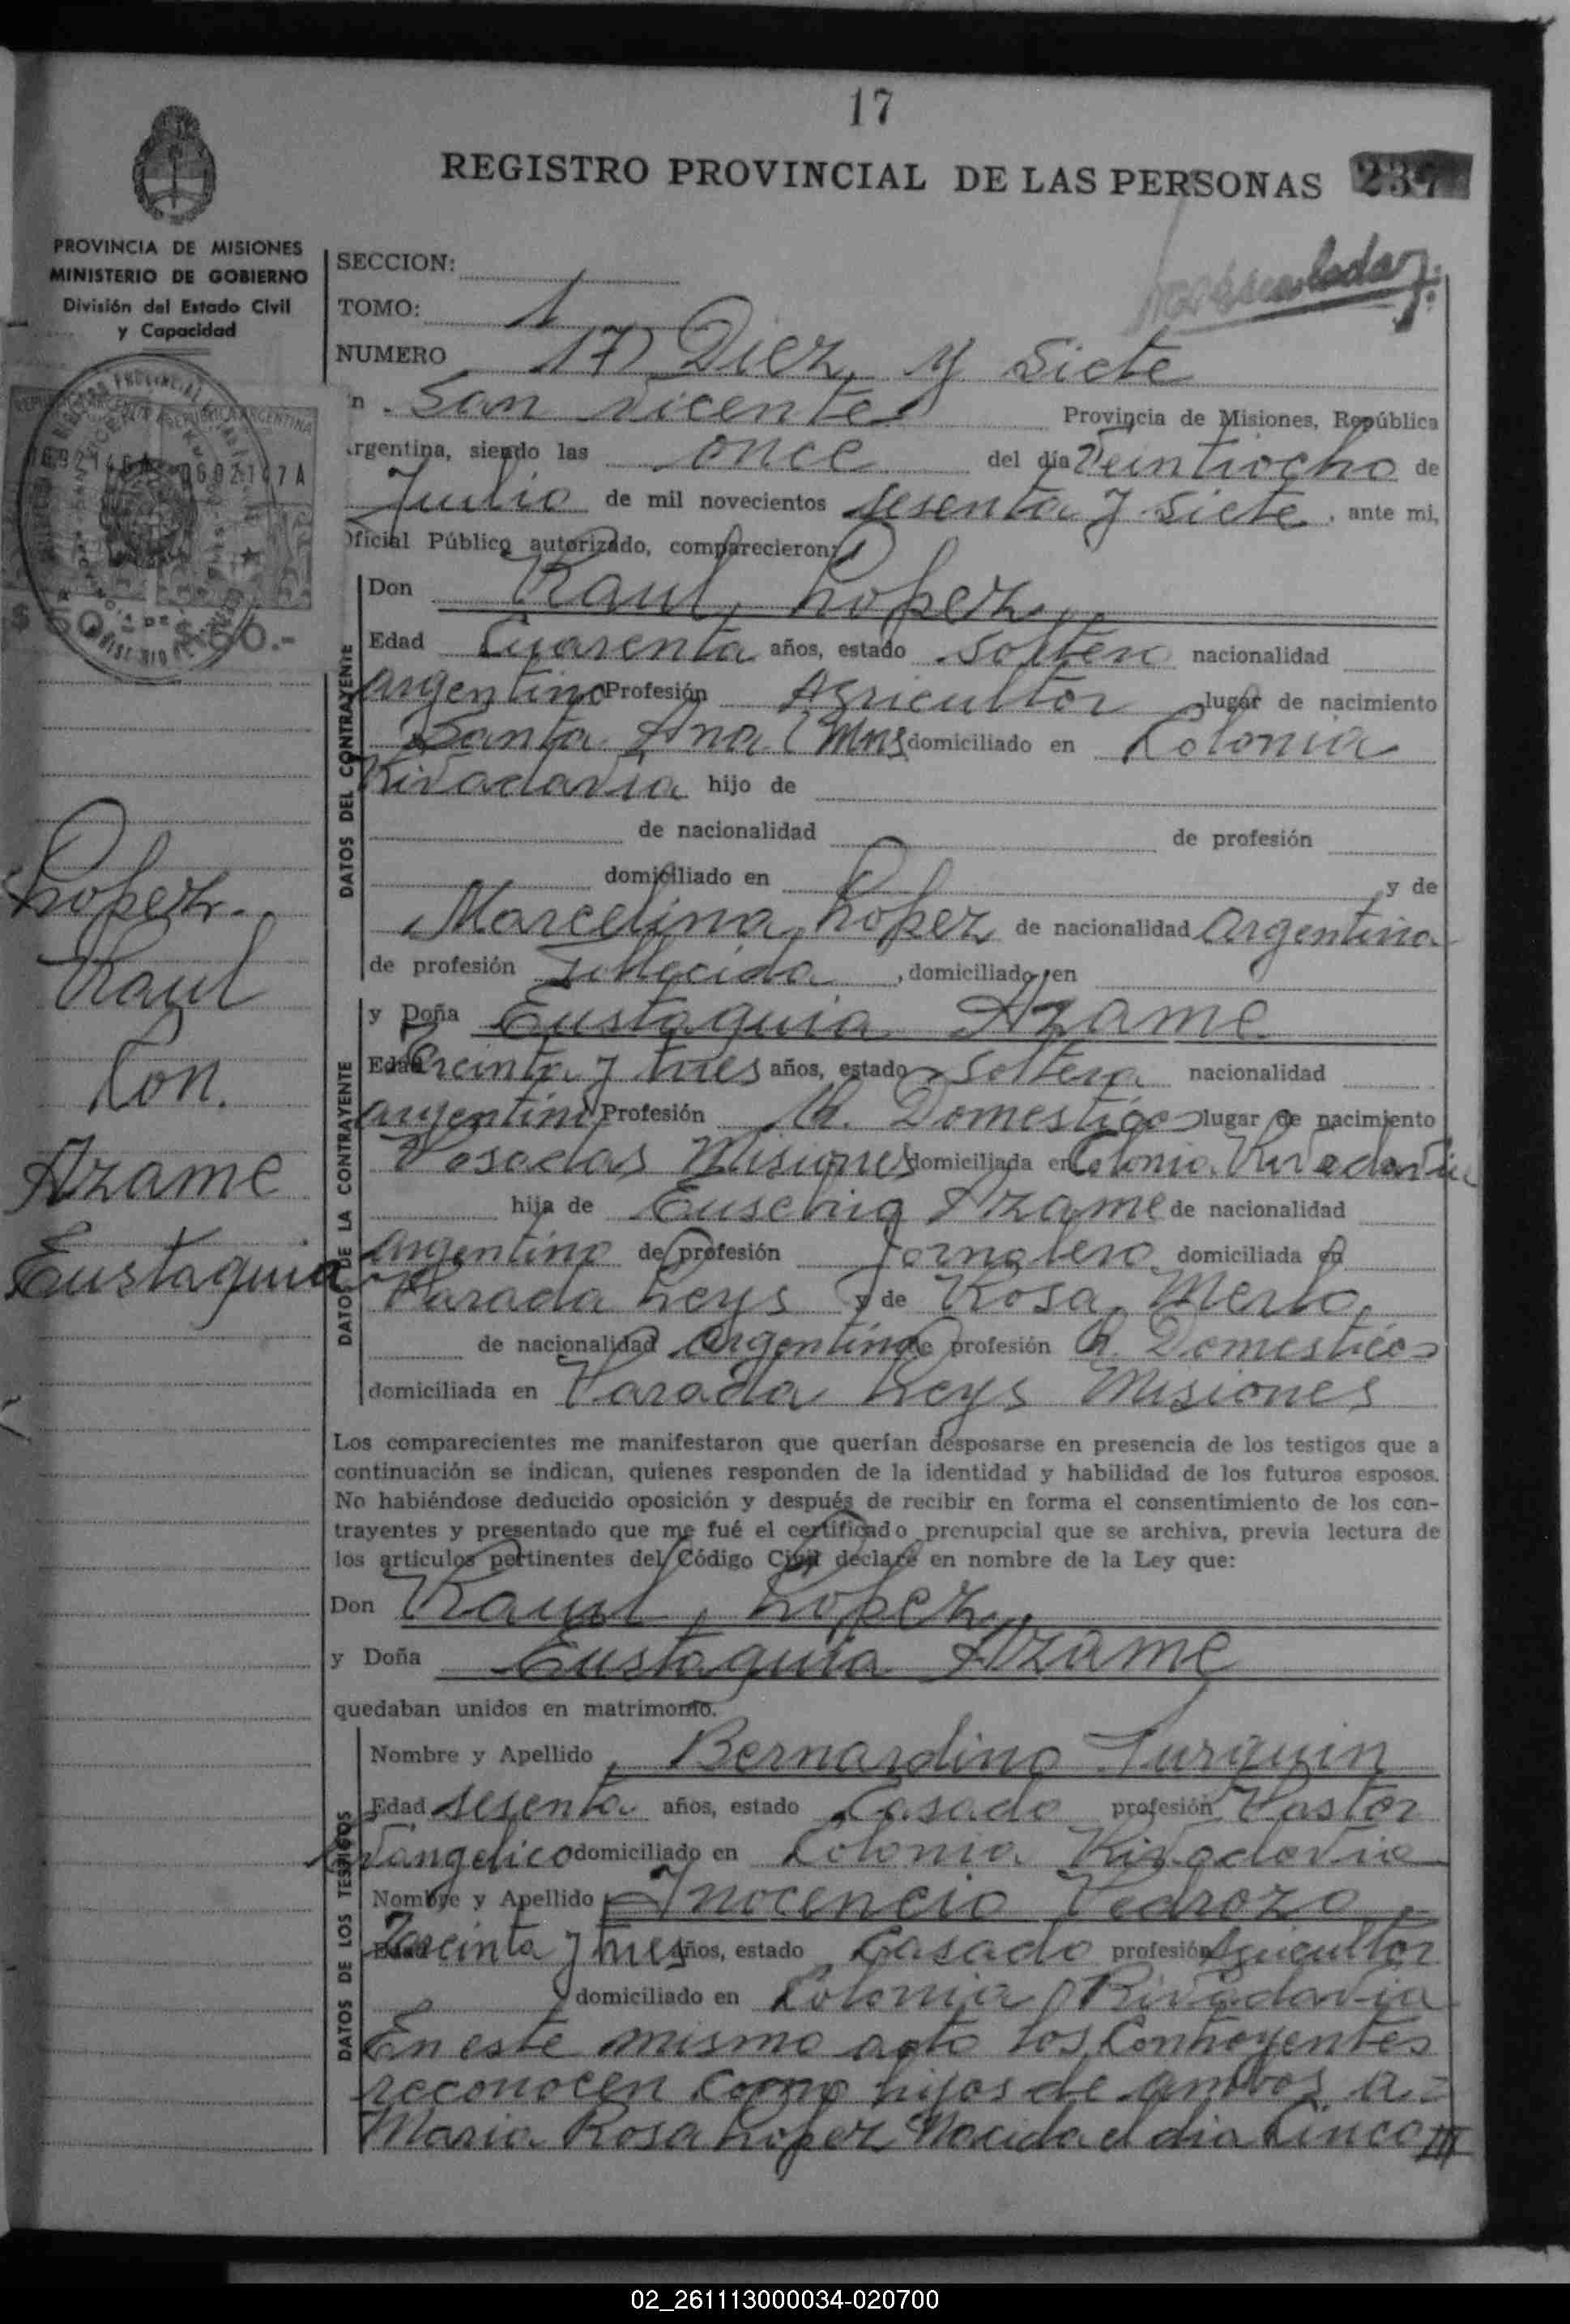 17
REGISTRO PROVINCIAL DE LAS PERSONAS 237
PROVINCIA DE MISIONES
MINISTERIO DE GOBIERNO
División del Estado Civil
y Capacidad
REPUBLICA ARGENTINA
0692147A
$ 50.- $ 50.-
Lopez.
Raul
Con.
Azame
Eustaquia
SECCION:
TOMO: 1
NUMERO 17 Diez y Siete
n San Vicente Provincia de Misiones, República
rgentina, siendo las once del día Veintiocho de
Julio de mil novecientos sesenta y siete, ante mi,
Oficial Público autorizado, comparecieron:
DATOS DEL CONTRAYENTE
Don Raul Lopez
Edad Cuarenta años, estado soltero nacionalidad
argentino Profesión Agricultor lugar de nacimiento
Santa Ana (Mns domiciliado en Colonia
Rivadavia hijo de
de nacionalidad de profesión
domiciliado en y de
Marcelina Lopez de nacionalidad argentina
de profesión fallecida, domiciliado en
DATOS DE LA CONTRAYENTE
y Doña Eustaquia Azame
Edad Treinta y tres años, estado soltera nacionalidad
argentina Profesión Q. Domesticos lugar de nacimiento
Posadas Misiones domiciliada en Colonia Rivadavia
hija de Eusebio Azame de nacionalidad
argentino de profesión Jornalero domiciliada en
Parada Leys y de Rosa Merlo
de nacionalidad argentina de profesión Q. Domesticos
domiciliada en Parada Leys Misiones
Los comparecientes me manifestaron que querían desposarse en presencia de los testigos que a
continuación se indican, quienes responden de la identidad y habilidad de los futuros esposos.
No habiéndose deducido oposición y después de recibir en forma el consentimiento de los con-
trayentes y presentado que me fué el certificado prenupcial que se archiva, previa lectura de
los artículos pertinentes del Código Civil declaré en nombre de la Ley que:
Don Raul Lopez
y Doña Eustaquia Azame
quedaban unidos en matrimonio.
DATOS DE LOS TESTIGOS
Nombre y Apellido Bernardino Turquin
Edad sesenta años, estado Casado profesión Pastor
Evangelico domiciliado en Colonia Rivadavia
Nombre y Apellido Inocencio Pedrozo
Edad Treinta y tres años, estado Casado profesión Agricultor
domiciliado en Colonia Rivadavia
En este mismo acto los Contrayentes
reconocen como hijos de ambos a=
Maria Rosa Lopez Nacida el dia Cinco ///
02_261113000034-020700